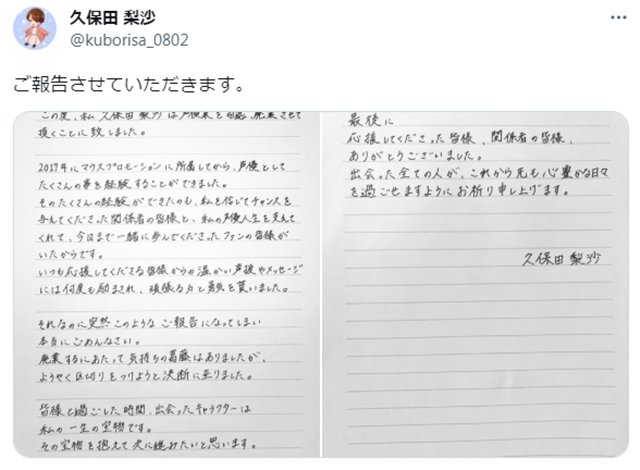 久保田 梨沙
@kuborisa_0802
ご報告させていただきます。
この度、私 久保田 梨沙 は声優業を 廃業 させて
頂くことに致しました。
2017年にマウスプロモーションに所属してから、声優として
たくさんの事を経験することができました。
そのたくさんの経験ができたのも、私を信じてチャンスを
与えてくださった関係者の皆様と、私の声優人生を支えて
くれて、今日まで一緒に歩んでくださったファンの皆様が
いたからです。
いつも応援してくださる皆様からの温かい声援やメッセージ
には何度も励まされ、頑張る力と勇気を貰いました。
それなのに突然このようなご報告になってしまい
本当にごめんなさい。
廃業するにあたって気持ちの葛藤はありましたが、
ようやく区切りをつけようと決断に至りました。
皆様と過ごした時間、出会ったキャラクターは
私の一生の宝物です。
その宝物を抱えて次に進みたいと思います。
最後に
応援してくださった皆様、関係者の皆様、
ありがとうございました。
出会った全ての人が、これから先も心豊かな日々
を過ごせますようにお祈り申し上げます。
久保田 梨沙